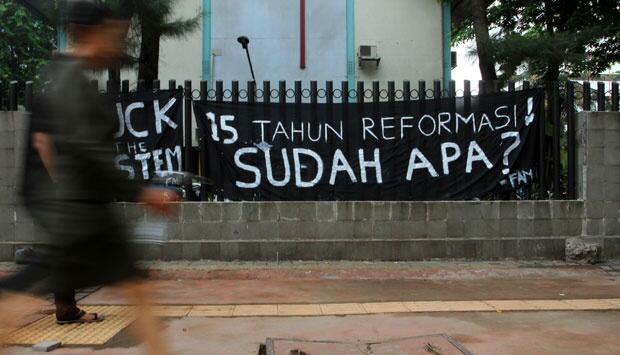 UCK
THE
STEM
15 TAHUN REFORMASI!
SUDAH APA?
FAM